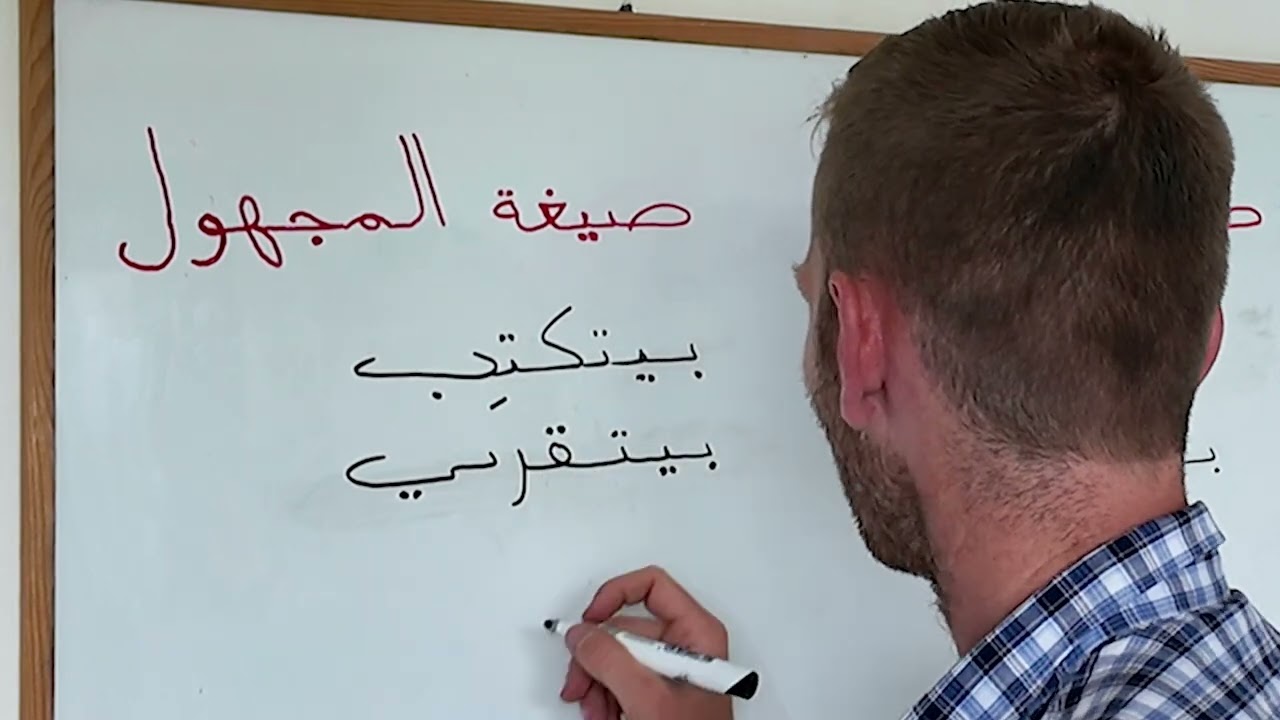 صيغة المجهول
بيتكتِب
بيتقرى